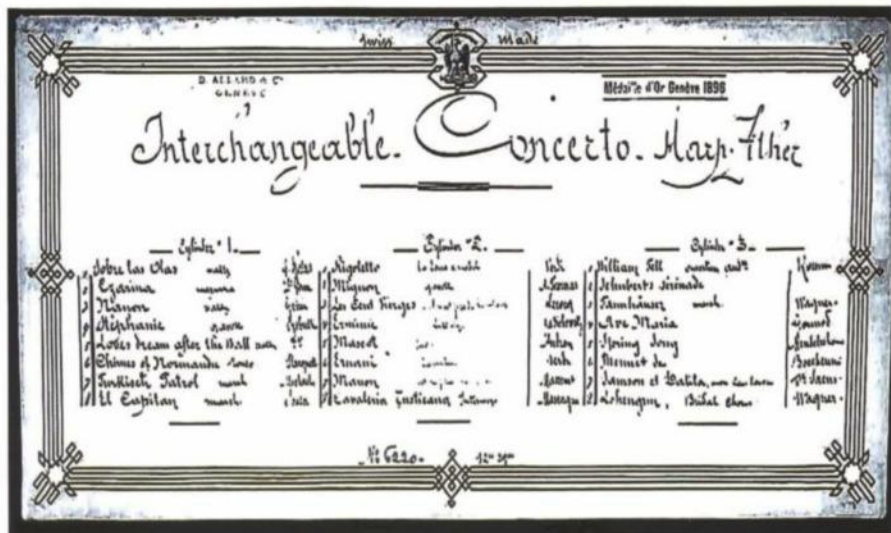 Swiss Made
D. ALLARD & Cᵒ
GENÈVE
Médaille d'Or Genève 1896
Interchangeable. Concerto. Harp. Zither
Cylinder Nº 1.
1 Sobre las Olas waltz
2 Czarina mazurka
3 Nanon valse
4 Stéphanie gavotte
5 Loves dream after the Ball
6 Chimes of Normandie
7 Turkisch Patrol march
8 El Capitan march
Cylinder Nº 2.
1 Rigoletto Verdi
2 Mignon gavotte
3 Les Cent Vierges Lecocq
4 Erminie
5 Mascot Audran
6 Ernani Verdi
7 Manon Massenet
8 Cavaleria Rusticana
Cylinder Nº 3.
1 William Tell Rossini
2 Schubert's Sérénade
3 Tannhäuser march Wagner
4 Ave Maria Gounod
5 Spring Song Mendelssohn
6 Menuet de Boccherini
7 Samson et Dalila, St Saens
8 Lohengrin, Bridal Chorus Wagner
Nº 6220.